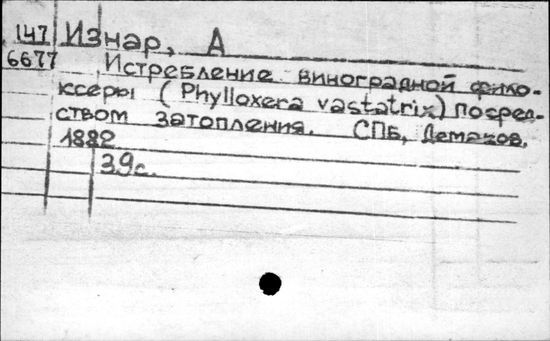 147 Изнар, А
6677 Истребление виноградной фило-
ксеры (Phylloxera vastatrix) посред-
ством затопления. СПБ, Демаков,
1882
39с.